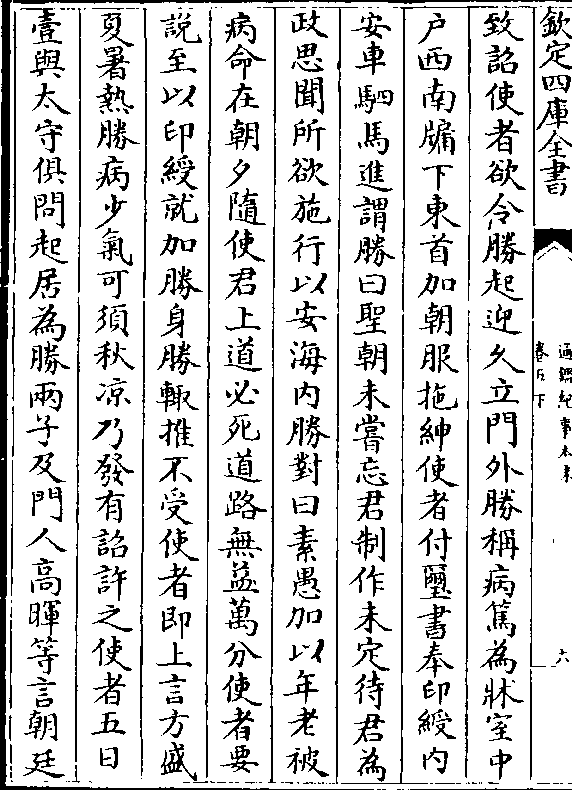 欽定四庫全書
通鑑紀事本末
卷五下
六
致詔使者欲令勝起迎久立門外勝稱病篤為牀室中
户西南牖下東首加朝服拖紳使者付璽書奉印綬内
安車駟馬進謂勝曰聖朝未嘗忘君制作未定待君為
政思聞所欲施行以安海内勝對曰素愚加以年老被
病命在朝夕隨使君上道必死道路無益萬分使者要
説至以印綬就加勝身勝輙推不受使者即上言方盛
夏暑熱勝病少氣可須秋凉乃發有詔許之使者五日
壹與太守俱問起居為勝兩子及門人高暉等言朝廷